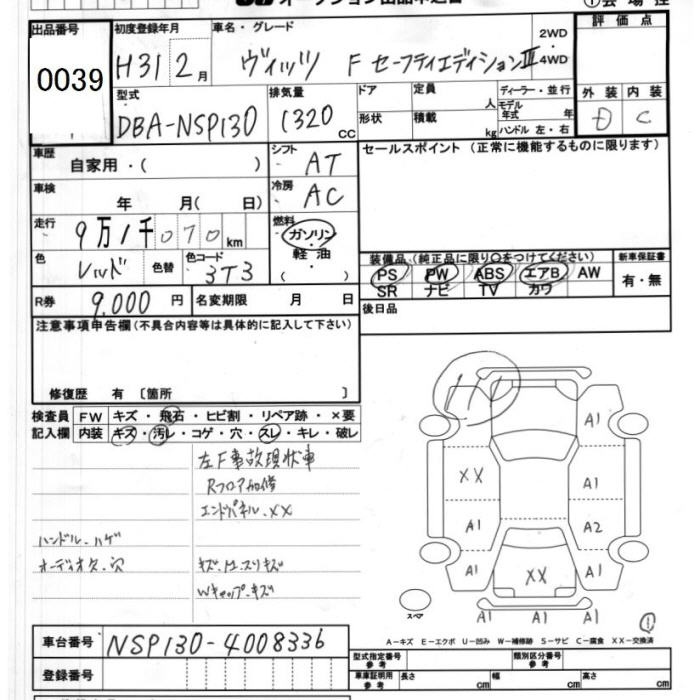 オークション出品申込書
①会場控
出品番号 初度登録年月 車名・グレード 評価点
0039
H31 2月 ヴィッツ F セーフティエディションⅢ 2WD 4WD
型式 排気量 ドア 定員 人 ディーラー・並行 外装 内装
DBA-NSP130 1320 cc 形状 積載 kg モデル年式 年 ハンドル 左・右 D C
車歴 自家用・( ) シフト AT セールスポイント(正常に機能するものに限ります)
車検 年 月( 日) 冷房 AC
走行 9万1千070km 燃料 ガソリン・軽油・( )
色 レッド 色替 色コード 3T3
装備品(純正品に限り○をつけてください) 新車保証書
PS PW ABS エアB AW 有・無
SR ナビ TV カワ
R券 9.000円 名変期限 月 日 後日品
注意事項申告欄(不具合内容等は具体的に記入して下さい)
修復歴 有〔箇所 〕
検査員 FW キズ・飛石・ヒビ割・リペア跡・×要
記入欄 内装 キズ・汚レ・コゲ・穴・スレ・キレ・破レ
左F事故現状車
Rフロア加修
エンドパネル.XX
ハンドル.ハゲ
オーディオタ.穴 キズ.エクスリキズ
Wキャップ.キズ
A1
XX A1
A1 A2
A1 XX A1
スペア
A1 A1 A1
①
A-キズ E-エクボ U-凹み W-補修跡 S-サビ C-腐食 XX-交換済
車台番号 NSP130-4008336
登録番号
型式指定番号 参考 類別区分番号 参考
車庫証明用 参考 長さ cm 幅 cm 高さ cm